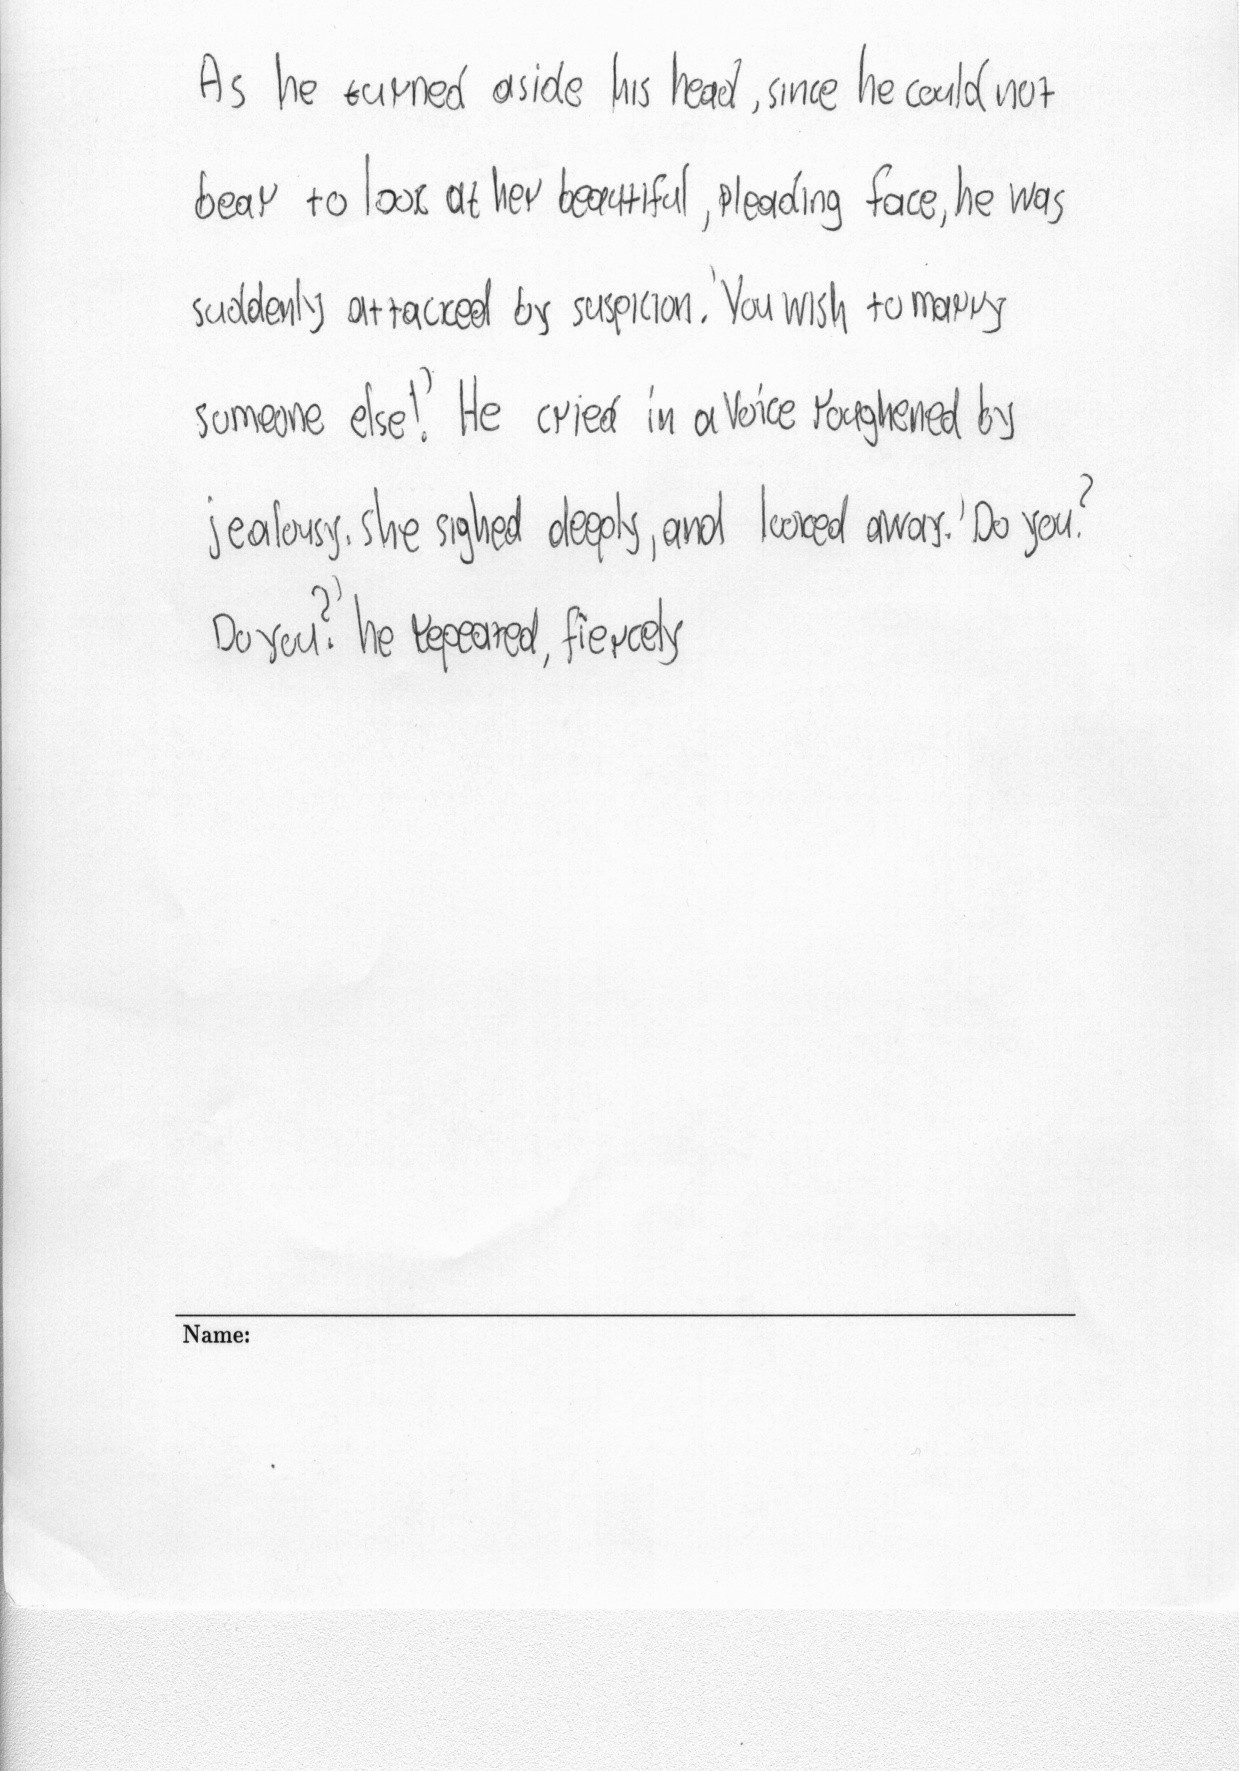 As he turned aside his head, since he could not
bear to look at her beautiful, pleading face, he was
suddenly attacked by suspicion. 'You wish to marry
someone else!' He cried in a voice roughened by
jealousy. She sighed deeply, and looked away. 'Do you?
Do you?' he repeated, fiercely
Name: